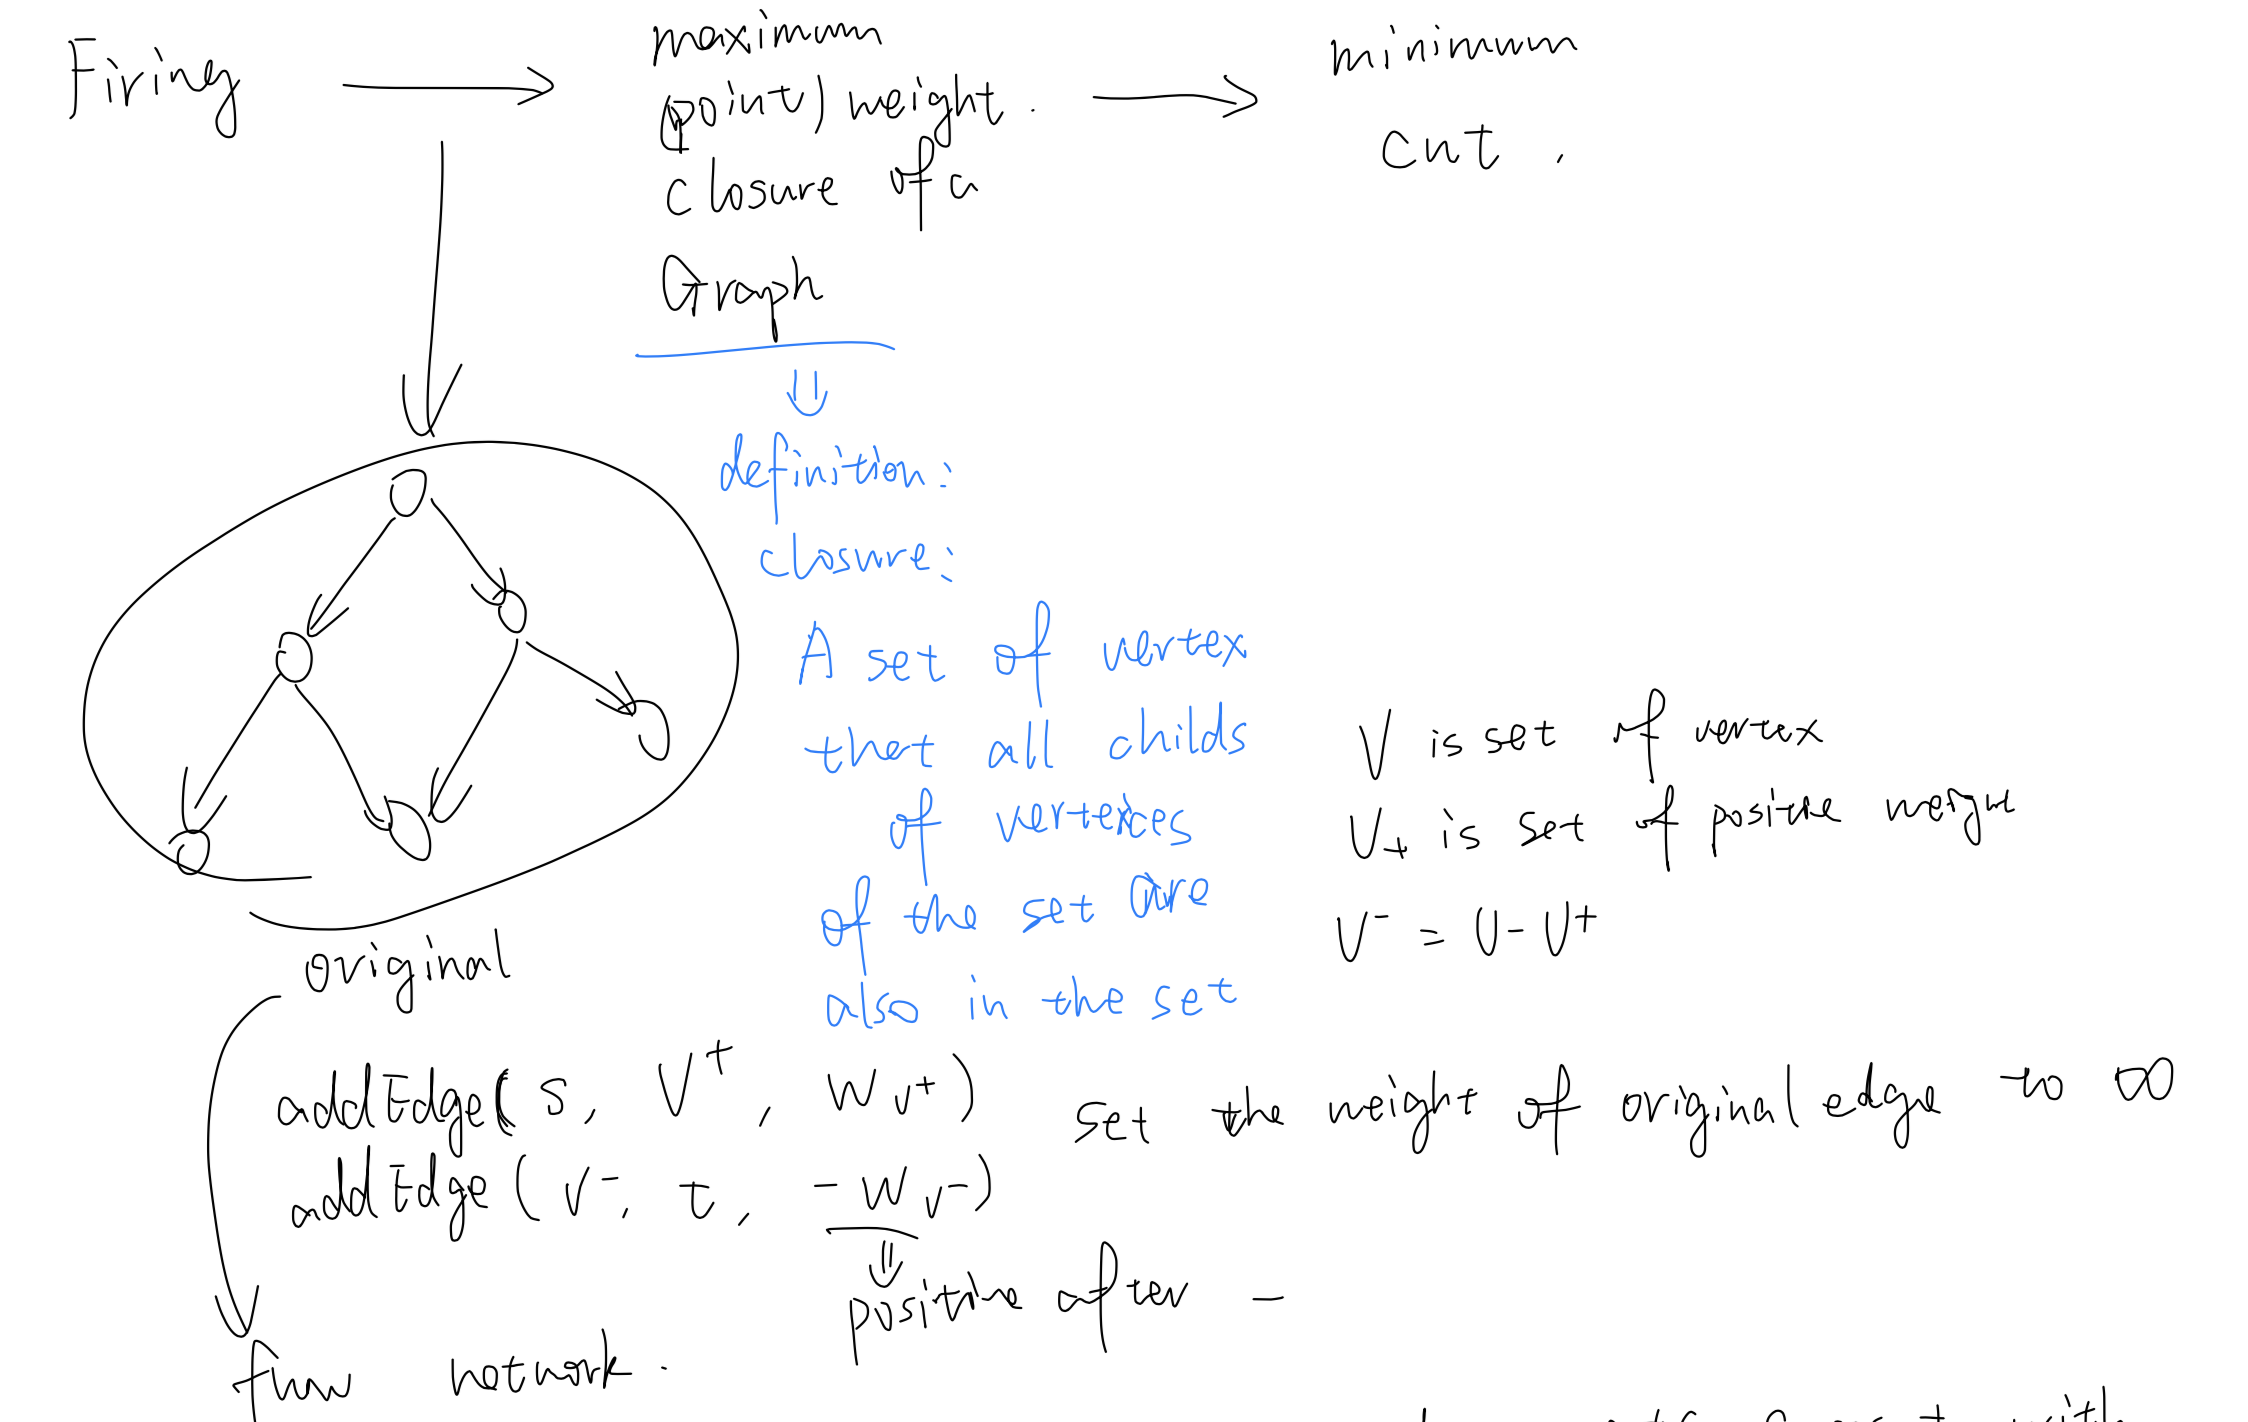 Firing
maximum
(point) weight.
closure of a
Graph
minimum
cut.
definition:
closure:
A set of vertex
that all childs
of vertexices
of the set are
also in the set
V is set of vertex
V+ is set of positive weight
V- = V - V+
original
addEdge(s, V+, Wv+)
addEdge(V-, t, -Wv-)
set the weight of original edge to ∞
positive after -
flow network.
with